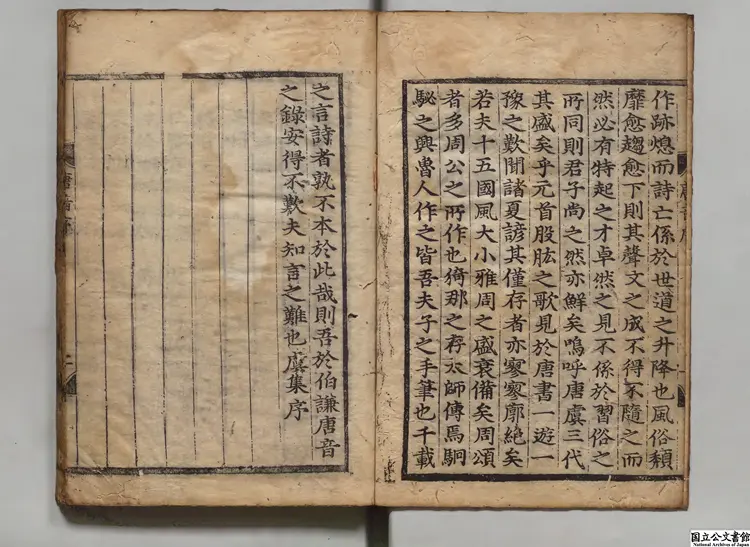 作跡熄而詩亡係於世道之升降也風俗頹
靡愈趨愈下則其聲文之成不得不隨之而
然必有特起之才卓然之見不係於習俗之
所同則君子尚之然亦鮮矣嗚呼唐虞三代
其盛矣乎元首股肱之歌見於唐書一遊一
豫之歎聞諸夏諺其僅存者亦寥寥廓絶矣
若夫十五國風大小雅周之盛衰備矣周頌
者多周公之所作也猗那之存太師傳焉駉
駜之興魯人作之皆吾夫子之手筆也千載
之言詩者孰不本於此哉則吾於伯謙唐音
之錄安得不歎夫知言之難也虞集序
唐音序
二
国立公文書館
National Archives of Japan